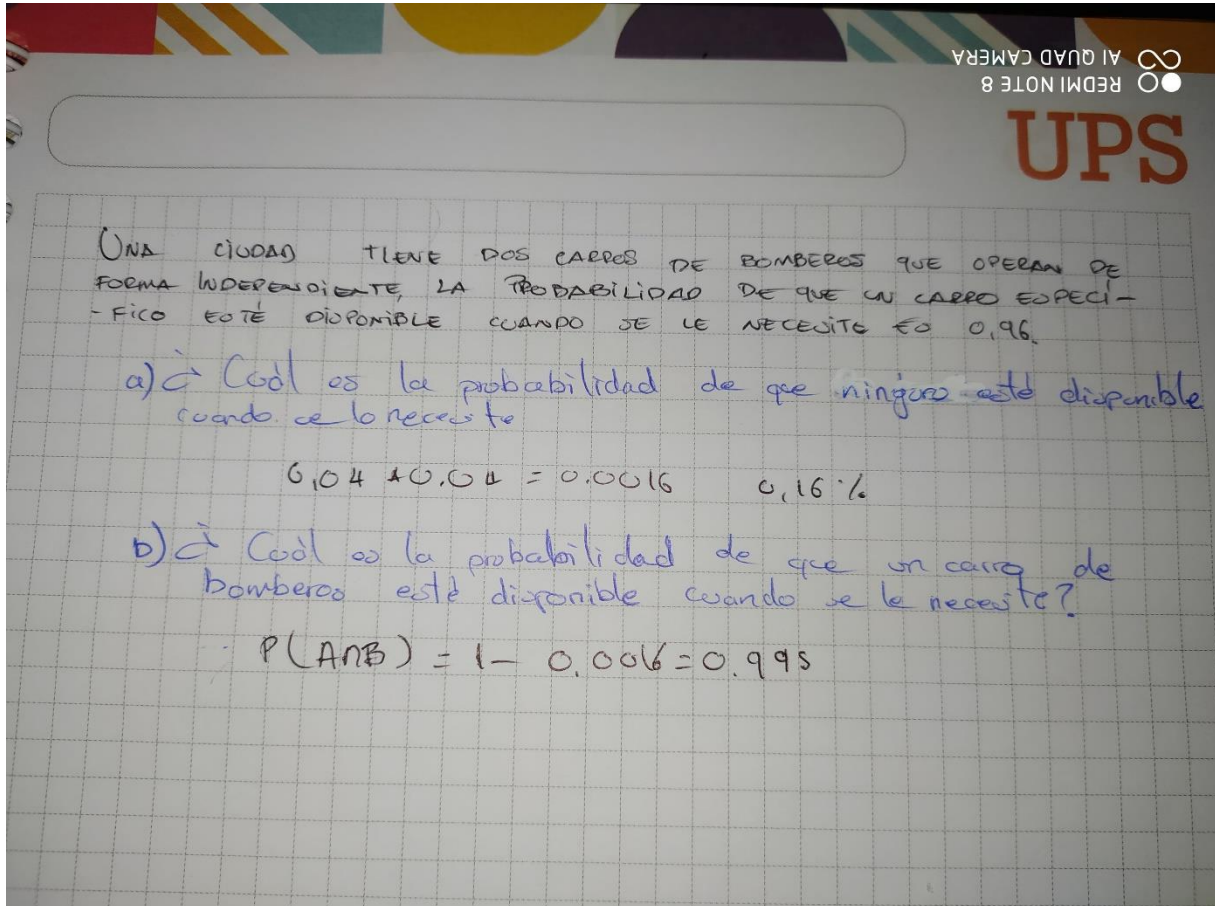 REDMI NOTE 8
AI QUAD CAMERA
UPS
UNA CIUDAD TIENE DOS CARROS DE BOMBEROS QUE OPERAN DE
FORMA INDEPENDIENTE, LA PROBABILIDAD DE QUE UN CARRO ESPECÍ-
-FICO ESTÉ DISPONIBLE CUANDO SE LE NECESITE ES 0,96.
a) ¿ Cuál es la probabilidad de que ninguno esté disponible
cuando se lo necesite
0,04 * 0.04 = 0.0016 0,16 %
b) ¿ Cuál es la probabilidad de que un carro de
bomberos esté disponible cuando se le necesite?
P(A∩B) = 1 - 0.0016 = 0.995